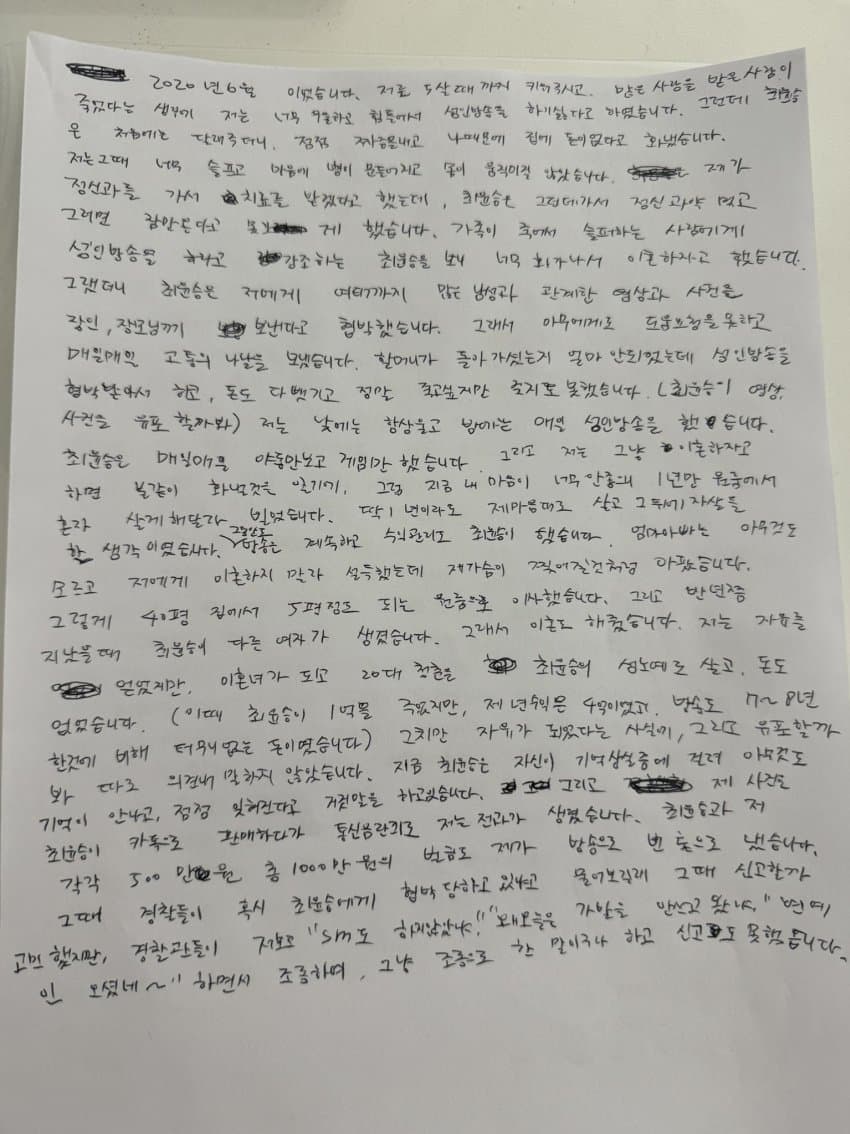 2020년 6월 이었습니다. 저를 5살때 까지 키워주시고. 많은 사랑을 받은 사람이
죽었다는 생각에 저는 너무 우울하고 힘들어서 성인방송을 하기싫다고 하였습니다. 그런데 최윤승
은 처음에는 달래주더니, 점점 짜증을내고 나때문에 집에 돈이없다고 화냈습니다.
저는그때 너무 슬프고 마음에 병이 몸이 움직이질 않았습니다. 제가
정신과를 가서 치료를 받겠다고 했는데, 최윤승은 그런데가서 정신과약 먹고
그러면 못 게 했습니다. 가족이 죽어서 슬퍼하는 사람에게
성인방송을 하라고 강조하는 최윤승을 보니 너무 화가나서 이혼하자고 했습니다.
그랬더니 최윤승은 저에게 여태까지 많은 남성과 관계한 영상과 사진을
장인, 장모님께 보낸다고 협박했습니다. 그래서 아무에게도 도움요청을못하고
매일매일 고통의 나날을 보냈습니다. 할머니가 돌아가셨는지 얼마 안되었는데 성인방송을
협박받아서 하고, 돈도 다뺏기고 정말 죽고싶지만 죽지도 못했습니다. (최윤승이 영상,
사진을 유포할까봐) 저는 낮에는 항상울고 밤에는 매일 성인방송을 했습니다.
최윤승은 매일매일 야동만보고 게임만 했습니다. 그리고 저는 그냥 이혼하자고
하면 불같이 화낸것을 알기에, 그럼 지금 내 마음이 너무 안좋으니 1년만 원룸에서
혼자 살게해달라 빌었습니다. 딱 1년이라도 제마음대로 살고 그뒤에 자살을
할 생각이었습니다. 그동안도 방송은 계속하고 수익관리도 최윤승이 했습니다. 엄마아빠는 아무것도
모르고 저에게 이혼하지 말라 설득했는데 제가슴이 찢어질것처럼 아팠습니다.
그렇게 40평 집에서 5평정도 되는 원룸으로 이사했습니다. 그리고 반년쯤
지났을때 최윤승이 다른 여자가 생겼습니다. 그래서 이혼도 해줬습니다. 저는 자유를
얻었지만, 이혼녀가 되고 20대 청춘을 최윤승의 성노예로 살고, 돈도
없었습니다. (이때 최윤승이 1억을 주었지만, 제 년수익은 4억이었고, 방송도 7~8년
한것에 비해 터무니없는 돈이였습니다) 그치만 자유가 되었다는 사실에, 그리고 유포할까
봐 따로 의견내 말하지 않았습니다. 지금 최윤승은 자신이 기억상실증에 걸려 아무것도
기억이 안나고, 점점 잊혀진다고 거짓말을 하고있습니다. 그리고 제 사진을
최윤승이 카톡으로 판매하다가 통신음란죄로 저는 전과가 생겼습니다. 최윤승과 저
각각 500만원 총 1000만원의 벌금도 제가 방송으로 번 돈으로 냈습니다.
그때 경찰들이 혹시 최윤승에게 협박 당하고 있냐고 물어보길래 그때 신고할까
고민했지만, 경찰관들이 저보고 "sm도 하지않았냐" "왜오늘은 가발을 안쓰고 왔냐." "연예
인 오셨네~" 하면서 조롱하여, 그냥 조롱으로 한 말이구나 하고 신고도 못했습니다.